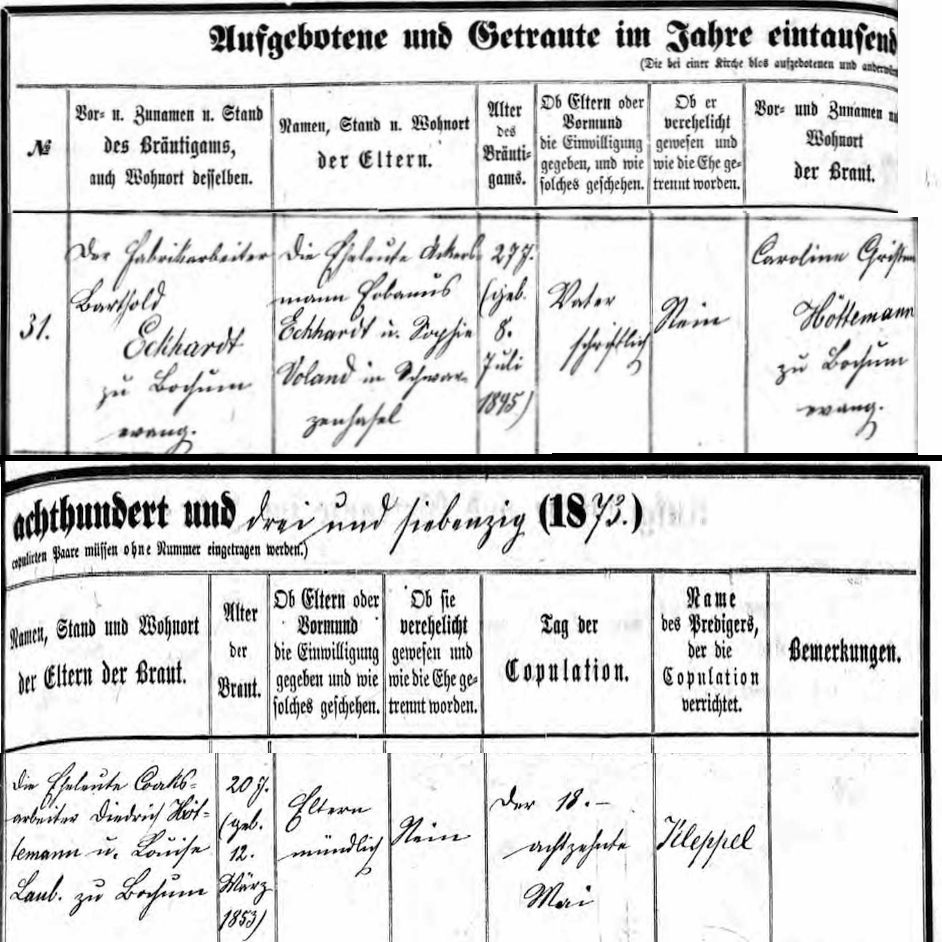 Aufgebotene und Getraute im Jahre eintausend
(Die bei einer Kirche blos aufgebotenen und anderwä
№
Vor- u. Zunamen u. Stand
des Bräutigams,
auch Wohnort desselben.
Namen, Stand u. Wohnort
der Eltern.
Alter
des
Bräuti-
gams.
Ob Eltern oder
Vormund
die Einwilligung
gegeben, und wie
solches geschehen.
Ob er
verehelicht
gewesen und
wie die Ehe ge-
trennt worden.
Vor- und Zunamen u
Wohnort
der Braut.
31.
Der Fabrikarbeiter
Barthold
Eckhardt
zu Bochum
evang.
Die Eheleute Ackers-
mann Eobanus
Eckhardt u. Sophie
Voland in Schwar-
zenhasel
27 J.
(geb.
8.
Juli
1845)
Vater
schriftlich
Nein
Caroline Christine
Höttemann
zu Bochum
evang.
achthundert und drei und siebenzig (1873.)
copulirten Paare müssen ohne Nummer eingetragen werden.)
Namen, Stand und Wohnort
der Eltern der Braut.
Alter
der
Braut.
Ob Eltern oder
Vormund
die Einwilligung
gegeben und wie
solches geschehen.
Ob sie
verehelicht
gewesen und
wie die Ehe ge-
trennt worden.
Tag der
Copulation.
Name
des Predigers,
der die
Copulation
verrichtet.
Bemerkungen.
Die Eheleute Coaks-
arbeiter Diedrich Höt-
temann u. Louise
Laub. zu Bochum
20 J.
(geb.
12.
März
1853)
Eltern
mündlich
Nein
Der 18.-
achtzehnte
Mai
Kleppel